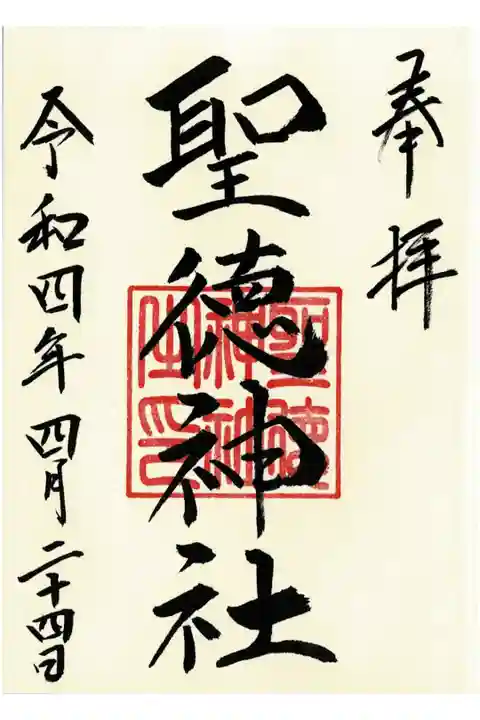 奉拝
聖徳神社
聖徳神社之印
令和四年四月二十四日